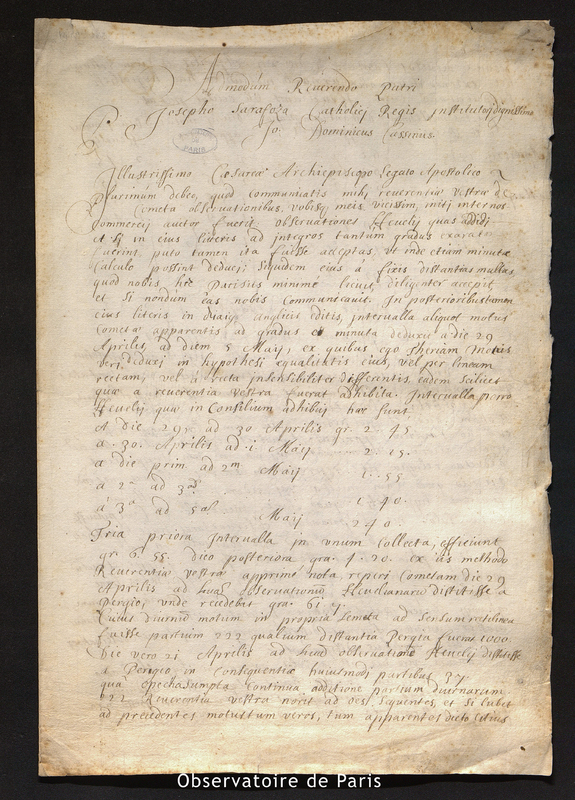 Admodum Reverendo Patri
P. Josepho Sarasoza Catholicj Regis Institutorj dignissimo
Jo. Dominicus Cassinus.
PARIS
Illustrissimo Caesareae Archiepiscopo Legato Apostolico
plurimum debeo, quod communicatis mihj reverentiae vestrae de
Cometa observationibus, vobisq meis vicissim, mitj internos
commercij auctor fuerit observationes Hevelij quas addidj
et sj in eius literis ad integros tantum gradus exaratae
fuerint, puto tamen ita fuisse acceptas, ut inde etiam minuta
calculo possint deducj siquidem eius a fixis distantias multas
quod nobis hic Parisiis minime licuit diligenter accepit,
et si nondum eas nobis communicavit. In posterioribus tamen
eius literis in diarijs anglicis editis, intervalla aliquot motus
Cometae apparentis ad gradus et minuta deduxit a die 29
Aprilis, ad diem 5 Maij, ex quibus ego Theoriam Motus
veri deduxj in hypothesi aequalitatis eius, vel per lineam
rectam, vel a recta insensibiliter differentis eadem scilicet
quae a reverentia vestra fuerat adhibita. Intervalla porro
Hevelij quae in Consilium adhibuj haec sunt
A die 29 ad 30 Aprilis gr. 2. 45
a. 30. Aprilis ad. 1. Maij 2. 15.
a die prim. ad 2m Maij 1. 55
a 2a ad 3am 1. 40.
a 3a ad 5am Maij 2. 40.
Tria priora intervalla in unum collecta, efficiunt
gr. 6. 55. Duo posteriora gra. 4. 20. ex iis methodo
Reverentiae vestrae apprime nota, reperi Cometam die 29
Aprilis ad observationum Hevelianarum distitisse a
Perigio, unde recedebat gra. 61
Cuius diurnus motum in propria semita ad sensum rectilinea
fuisse partium 222 qualium distantia Perigea fuerat 1000
Die vero 21 Aprilis ad observationis Hevelij distitisse
a Perigeo in consequentia huiusmodi partibus 37
qua epocha sumpta continua additione partium diurnarum
222 Reverentia vestra norit ad dies sequentes, et si lubet
ad precedentes motus tum veros, tum apparentes dicto citius
Observatoire de Paris